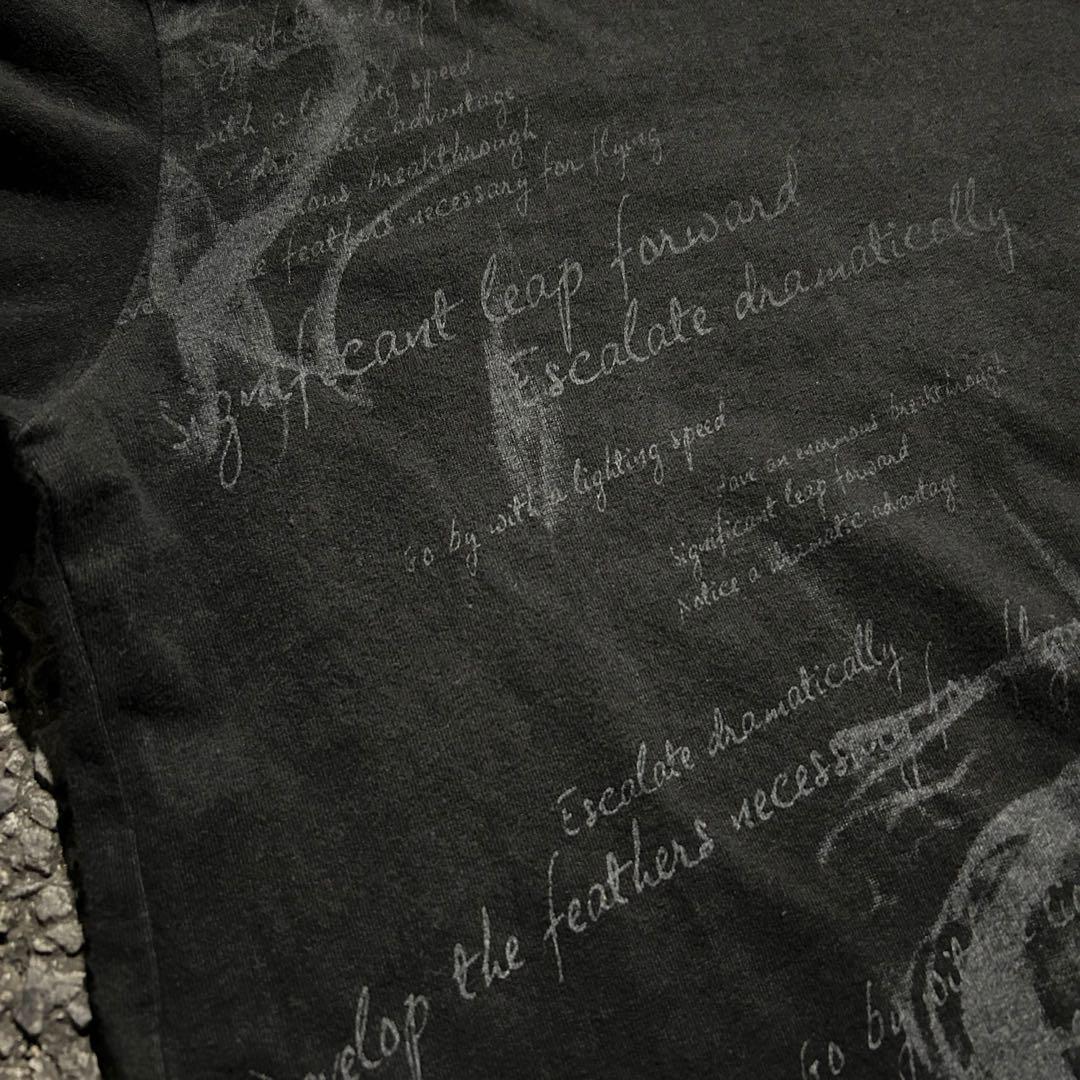 significant leap
with a lighting speed
a dramatic advantage
enormous breakthrough
the feathers necessary for flying
significant leap forward
Escalate dramatically
Go by with a lighting speed
Have an enormous breakthrough
significant leap forward
Notice a dramatic advantage
Escalate dramatically
develop the feathers necessary for flying
Go by wit